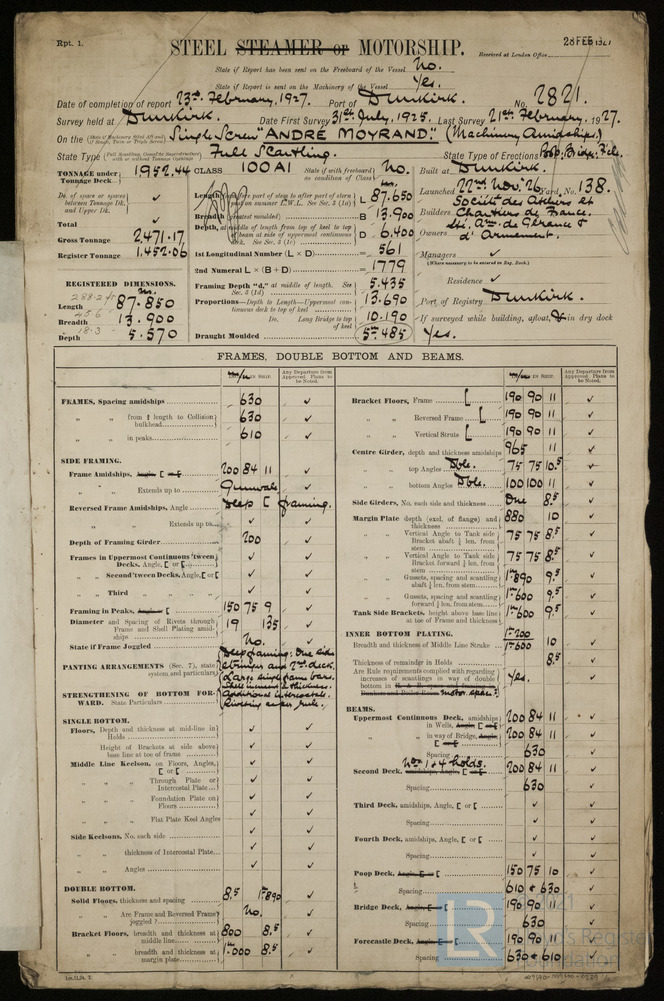 Rpt. 1.
28 FEB 1927
STEEL STEAMER or MOTORSHIP.
Received at London Office
State if Report has been sent on the Freeboard of the Vessel No.
State if Report is sent on the Machinery of the Vessel Yes.
Date of completion of report 23rd February, 1927. Port of Dunkirk. No. 2821.
Survey held at Dunkirk. Date First Survey 31st July, 1925. Last Survey 21st February, 1927.
On the Single Screw "ANDRÉ MOYRAND." (Machinery Amidships)
State Type Full Scantling. State Type of Erections Poop, Bridge, Fcle.
TONNAGE under Tonnage Deck 1952.44
CLASS 100A1 State if with freeboard as condition of Class No.
Built at Dunkirk.
Do. of space or spaces between Tonnage Dk. and Upper Dk. ✓
Total ✓
Gross Tonnage 2471.17
Register Tonnage 1,452.06
REGISTERED DIMENSIONS.
Length 87.850
Breadth 13.900
Depth 5.570
L 87.650
B 13.900
D 6.400
1st Longitudinal Number (L × D) = 561
2nd Numeral L × (B + D) = 1779
Framing Depth "d," at middle of length. See Sec. 3 (1d) 5.435
Proportions—Depth to Length—Uppermost continuous deck to top of keel 13.690
Do. Long Bridge to top of keel 10.190
Draught Moulded 5m.485
Launched 22nd Nov. 26 Yard No. 138.
Builders Société des Ateliers et Chantiers de France.
Owners Sté. Ame. de Gérance & d'Armement.
Managers ✓
(Where necessary to be entered in Reg. Book.)
Residence ✓
Port of Registry Dunkirk.
If surveyed while building, afloat, or in dry dock
Yes.
FRAMES, DOUBLE BOTTOM AND BEAMS.
IN SHIP.
Any Departure from Approved Plans to be Noted.
IN SHIP.
Any Departure from Approved Plans to be Noted.
FRAMES, Spacing amidships 630 ✓
" " from ⅕ length to Collision bulkhead 630 ✓
" " in peaks 610 ✓
SIDE FRAMING.
Frame Amidships, Angle [ 200 84 11 ✓
" " Extends up to Gunwale ✓
Reversed Frame Amidships, Angle Deep [ framing.
" " Extends up to ✓
Depth of Framing Girder 200 ✓
Frames in Uppermost Continuous 'tween Decks, Angle, [ or [ ✓
" " Second 'tween Decks, Angle, [ or [ ✓
" " Third " " ✓
Framing in Peaks, Angle or [ 150 75 9 ✓
Diameter and Spacing of Rivets through Frame and Shell Plating amidships 19 135 ✓
State if Frame Joggled No. ✓
PANTING ARRANGEMENTS (Sec. 7), state system and particulars Deep framing: One side stringer and 2nd deck. Large single frame bars.
STRENGTHENING OF BOTTOM FORWARD. State Particulars Shell increased in thickness. Additional intercostals. Riveting as per rule.
SINGLE BOTTOM.
Floors, Depth and thickness at mid-line in Holds ✓
Height of Brackets at side above base line at toe of frame ✓
Middle Line Keelson, on Floors, Angles, [ or [ ✓
" " Through Plate or Intercostal Plate ✓
" " Foundation Plate on Floors ✓
" " Flat Plate Keel Angles ✓
Side Keelsons, No. each side ✓
" " thickness of Intercostal Plate ✓
" " Angles ✓
DOUBLE BOTTOM.
Solid Floors, thickness and spacing 8.5 1m.890 ✓
" " Are Frame and Reversed Frame joggled? No. ✓
Bracket Floors, breadth and thickness at middle line 800 8.5 ✓
" " breadth and thickness at margin plate 1m.000 8.5 ✓
Bracket Floors, Frame [ 190 90 11 ✓
" " Reversed Frame [ 190 90 11 ✓
" " Vertical Struts [ 190 90 11 ✓
Centre Girder, depth and thickness amidships 965 11 ✓
" " top Angles Dble. 75 75 10.5 ✓
" " bottom Angles Dble. 100 100 11 ✓
Side Girders, No. each side and thickness One 8.5 ✓
Margin Plate depth (excl. of flange) and thickness 880 10 ✓
" " Vertical Angle to Tank side Bracket abaft ¼ len. from stem 75 75 8.5 ✓
" " Vertical Angle to Tank side Bracket forward ¼ len. from stem 75 75 8.5 ✓
" " Gussets, spacing and scantling abaft ¼ len. from stem 1m.890 9.5 ✓
" " Gussets, spacing and scantling forward ¼ len. from stem 1m.600 9.5 ✓
Tank Side Brackets, height above base line at toe of Frame and thickness 1m.600 9.5 ✓
INNER BOTTOM PLATING.
Breadth and thickness of Middle Line Strake 1m.200 1m.600 10 ✓
Thickness of remainder in Holds 8.5 ✓
Are Rule requirements complied with regarding increases of scantlings in way of double bottom in motor space? Yes. ✓
BEAMS.
Uppermost Continuous Deck, amidships in Wells, Angle, [ 200 84 11 ✓
" " in way of Bridge, Angle, [ 200 84 11 ✓
Spacing 630 ✓
Nos. 1 & 4 holds.
Second Deck, amidships, Angle, [ 200 84 11 ✓
Spacing 630 ✓
Third Deck, amidships, Angle, [ or [ ✓
Spacing ✓
Fourth Deck, amidships, Angle, [ or [ ✓
Spacing ✓
Poop Deck, Angle, [ 150 75 10 ✓
Spacing 610 & 630 ✓
Bridge Deck, Angle, [ 190 90
Spacing 630
Forecastle Deck, Angle, [ 190 90
Spacing 630 & 610
LR
2021
Lloyd's Register
Foundation